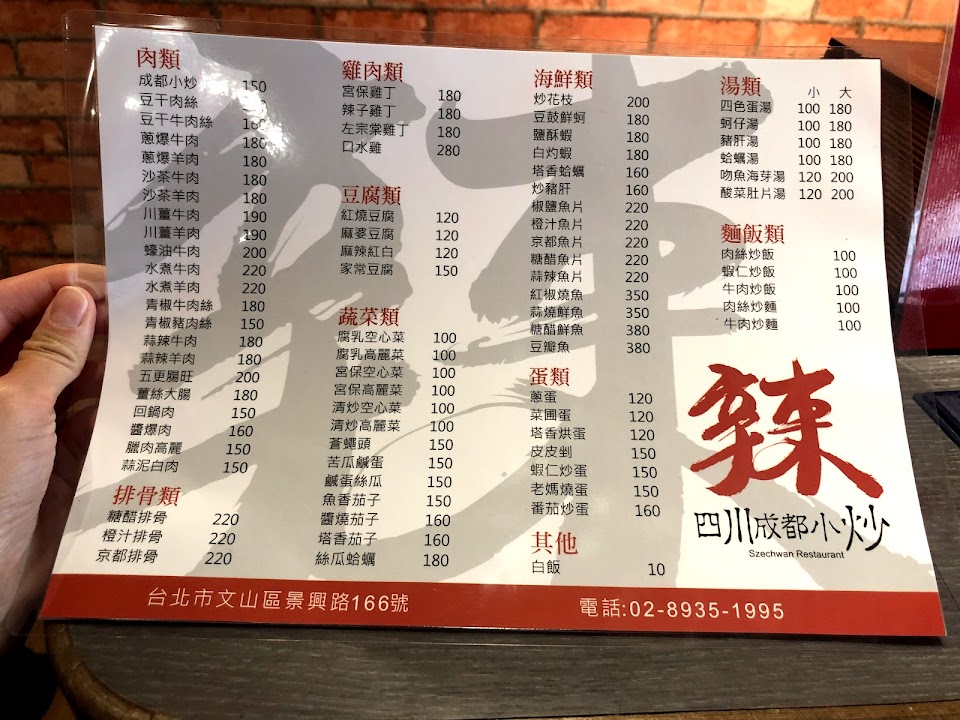 肉類
成都小炒 150
豆干肉絲
豆干牛肉絲 160
蔥爆牛肉 180
蔥爆羊肉 180
沙茶牛肉 180
沙茶羊肉 180
川薑牛肉 190
川薑羊肉 190
蠔油牛肉 200
水煮牛肉 220
水煮羊肉 220
青椒牛肉絲 180
青椒豬肉絲 150
蒜辣牛肉 180
蒜辣羊肉 180
五更腸旺 200
薑絲大腸 180
回鍋肉 150
醬爆肉 160
臘肉高麗 150
蒜泥白肉 150
排骨類
糖醋排骨 220
橙汁排骨 220
京都排骨 220
雞肉類
宮保雞丁 180
辣子雞丁 180
左宗棠雞丁 180
口水雞 280
豆腐類
紅燒豆腐 120
麻婆豆腐 120
麻辣紅白 120
家常豆腐 150
蔬菜類
腐乳空心菜 100
腐乳高麗菜 100
宮保空心菜 100
宮保高麗菜 100
清炒空心菜 100
清炒高麗菜 100
蒼蠅頭 150
苦瓜鹹蛋 150
鹹蛋絲瓜 150
魚香茄子 150
醬燒茄子 160
塔香茄子 160
絲瓜蛤蠣 180
海鮮類
炒花枝 200
豆鼓鮮蚵 180
鹽酥蝦 180
白灼蝦 180
塔香蛤蠣 160
炒豬肝 160
椒鹽魚片 220
橙汁魚片 220
京都魚片 220
糖醋魚片 220
蒜辣魚片 220
紅椒燒魚 350
蒜燒鮮魚 350
糖醋鮮魚 380
豆瓣魚 380
蛋類
蔥蛋 120
菜圃蛋 120
塔香烘蛋 120
皮皮剉 150
蝦仁炒蛋 150
老媽燒蛋 150
番茄炒蛋 160
其他
白飯 10
湯類 小 大
四色蛋湯 100 180
蚵仔湯 100 180
豬肝湯 100 180
蛤蠣湯 100 180
吻魚海芽湯 120 200
酸菜肚片湯 120 200
麵飯類
肉絲炒飯 100
蝦仁炒飯 100
牛肉炒飯 100
肉絲炒麵 100
牛肉炒麵 100
辣
四川成都小炒
Szechwan Restaurant
台北市文山區景興路166號 電話:02-8935-1995